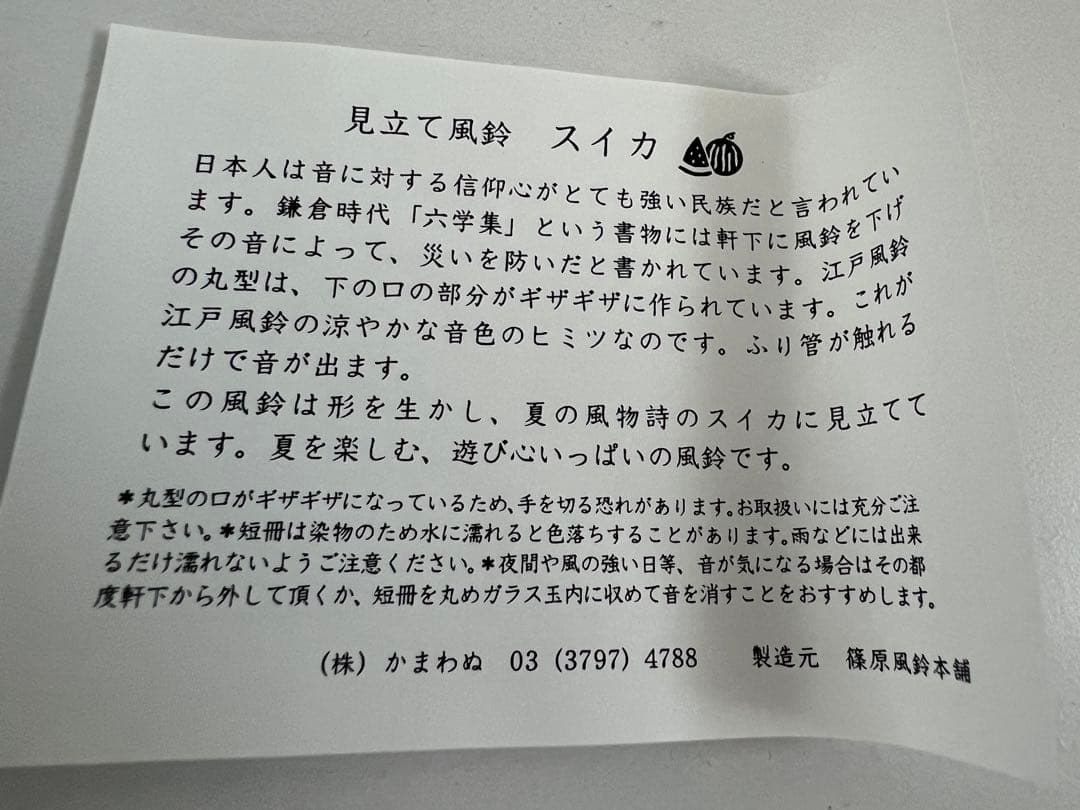 見立て風鈴 スイカ
日本人は音に対する信仰心がとても強い民族だと言われてい
ます。鎌倉時代「六学集」という書物には軒下に風鈴を下げ
その音によって、災いを防いだと書かれています。江戸風鈴
の丸型は、下の口の部分がギザギザに作られています。これが
江戸風鈴の涼やかな音色のヒミツなのです。ふり管が触れる
だけで音が出ます。
この風鈴は形を生かし、夏の風物詩のスイカに見立てて
います。夏を楽しむ、遊び心いっぱいの風鈴です。
*丸型の口がギザギザになっているため、手を切る恐れがあります。お取扱いには充分ご注
意下さい。*短冊は染物のため水に濡れると色落ちすることがあります。雨などには出来
るだけ濡れないようご注意ください。*夜間や風の強い日等、音が気になる場合はその都
度軒下から外して頂くか、短冊を丸めガラス玉内に収めて音を消すことをおすすめします。
(株)かまわぬ 03 (3797) 4788 製造元 篠原風鈴本舗